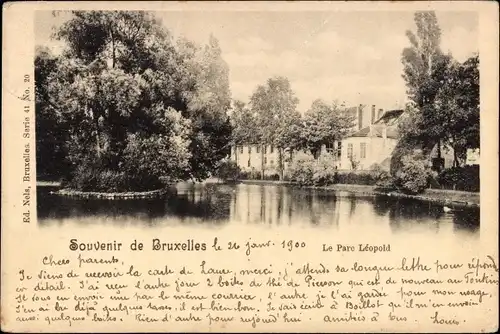 Ed. Nels, Bruxelles. Serie 41 No. 20
Souvenir de Bruxelles le 21 janv. 1900 Le Parc Léopold
Chers parents,
Je viens de recevoir la carte de Laure, merci, j'attends sa longue lettre pour répondre
en détail. J'ai reçu Jeudi 2 boîtes du thé de qui est de nouveau au
Je vous en envoie une par le même courrier, l'autre je l'ai gardé pour mon usage.
J'en ai bu déjà quelques tasses, il est bien bon. Je vais écrire à qu'il m'en envoie
aussi quelques boîtes. Rien d'autre pour aujourd'hui. Amitiés à tous.